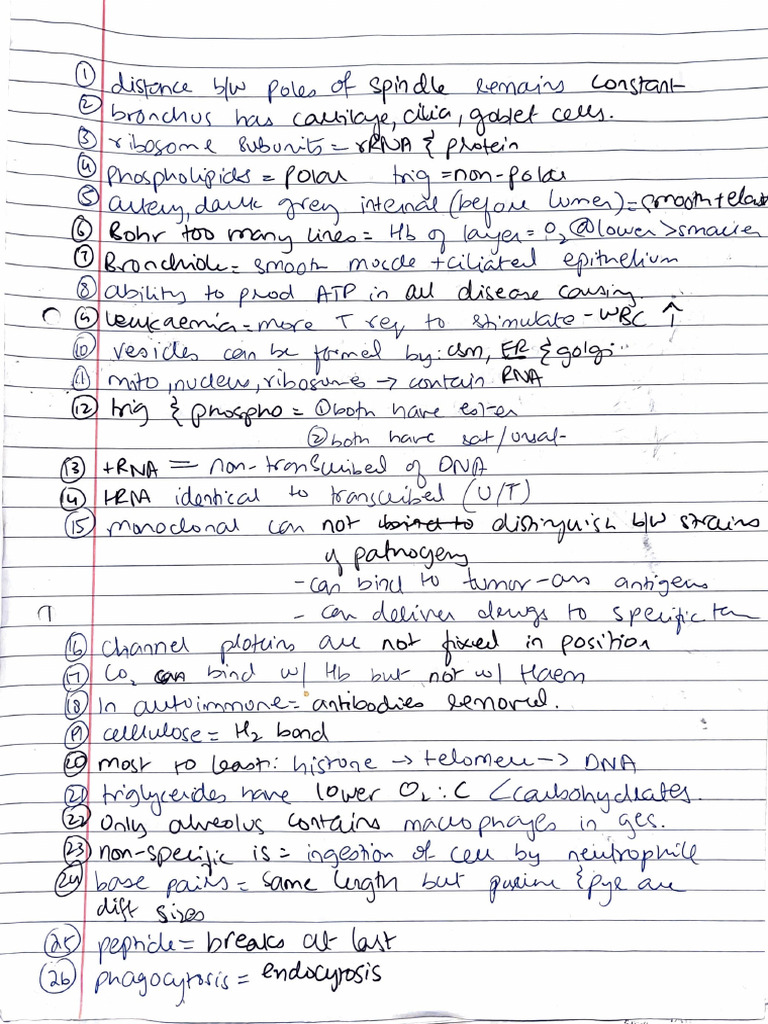 ① distance b/w poles of spindle remains constant
② bronchus has cartilage, cilia, goblet cells.
③ ribosome subunits = rRNA & protein
④ phospholipids = polar trig = non-polar
⑤ artery, dark grey internal (before lumen) = smooth + elas
⑥ Bohr too many lines = Hb of layer = O₂ @ lower > smaller
⑦ Bronchiole = smooth muscle + ciliated epithelium
⑧ ability to prod ATP in all disease causing.
⑨ leukaemia = more T req to stimulate - WBC ↑
⑩ vesicles can be formed by: csm, ER & golgi
⑪ mito, nucleus, ribosomes → contain RNA
⑫ trig & phospho = ① both have ester
② both have sat/unsat
⑬ tRNA = non-transcribed of DNA
⑭ tRNA identical to transcribed (U/T)
⑮ monoclonal can not bind to distinguish b/w strains
of pathogens
- can bind to tumor-ass antigens
- can deliver drugs to specific
⑯ channel proteins are not fixed in position
⑰ CO₂ can bind w/ Hb but not w/ Haem
⑱ In autoimmune = antibodies removed.
⑲ cellulose = H₂ bond
⑳ most to least: histone → telomere → DNA
㉑ triglycerides have lower O₂ : C < carbohydrates.
㉒ only alveolus contains macrophages in ges.
㉓ non-specific is = ingestion of cell by neutrophile
㉔ base pairs = same length but purine & pye are
diff sizes
㉕ peptide = breaks at last
㉖ phagocytosis = endocytosis